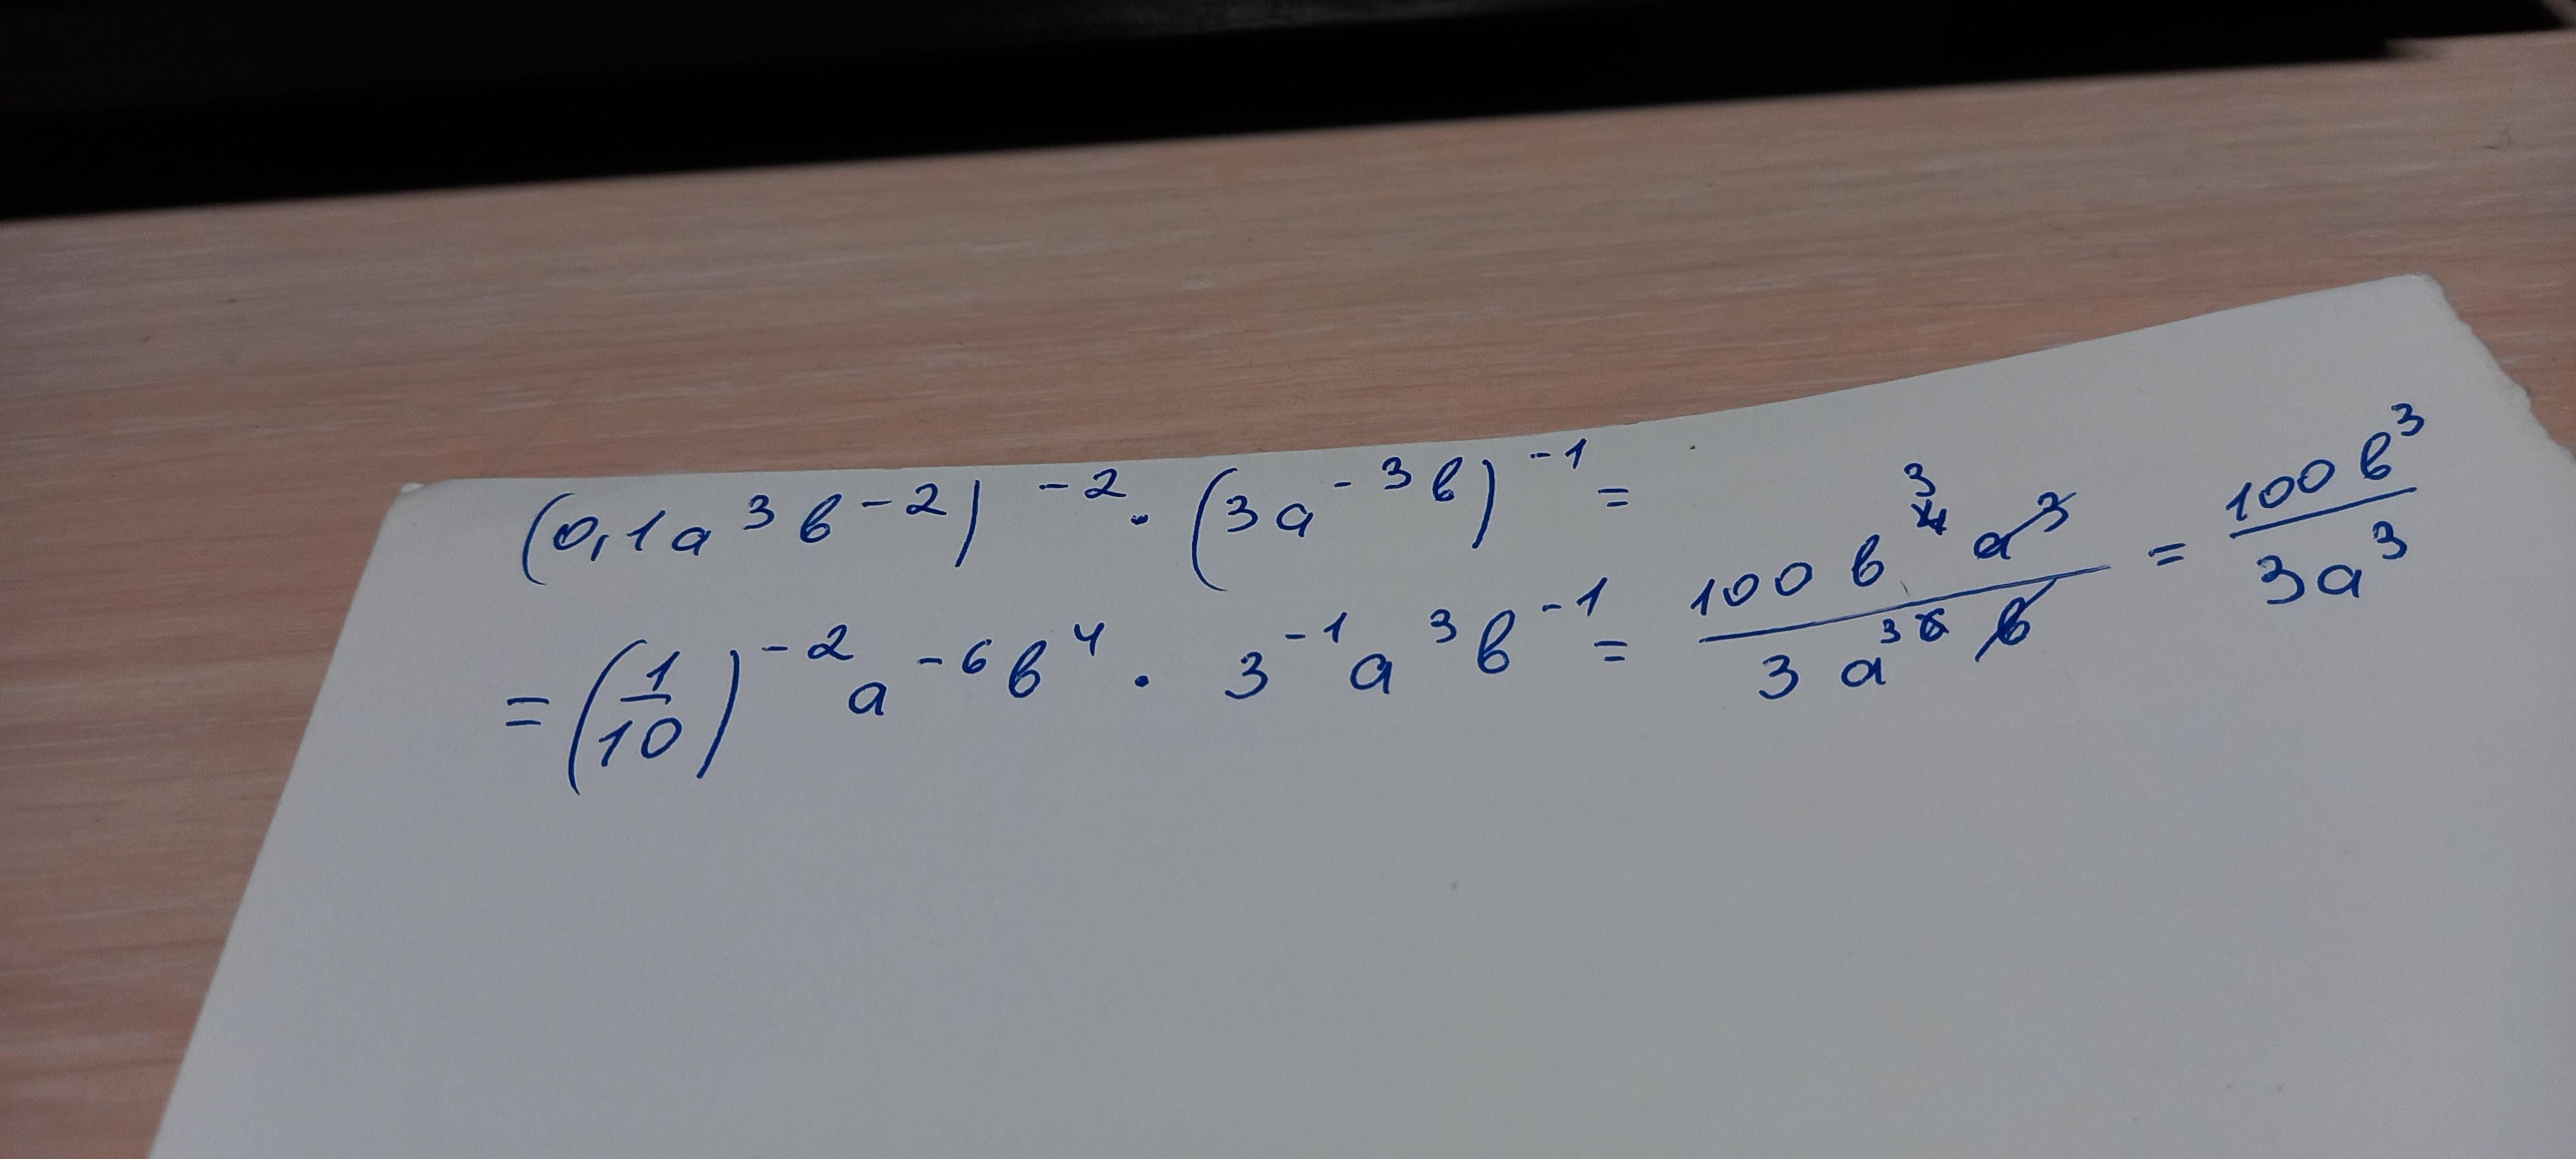 (0,1a³b⁻²)⁻² · (3a⁻³b)⁻¹ =
= (1/10)⁻² a⁻⁶b⁴ · 3⁻¹a³b⁻¹ = 100b⁴ ³a³ / 3a³ ⁶b = 100b³ / 3a³